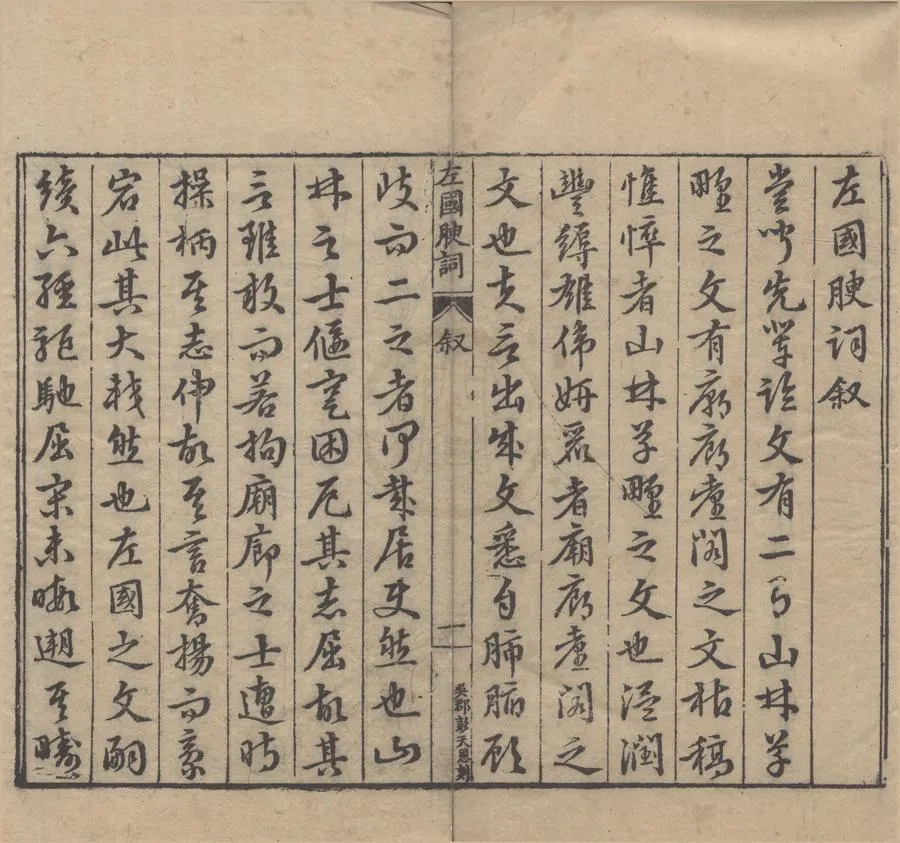 左國腴詞叙
嘗聞先輩論文有二有山林草
野之文有廟廊臺閣之文枯稿
憔悴者山林草野之文也溫潤
豐縟雄偉妍麗者廟廊臺閣之
文也夫言出成文悉自肺腑顧
左國腴詞
叙
一
吳郡彭天恩刻
歧而二之者何哉居使然也山
林之士偃蹇困厄其志屈故其
言雖放而若拘廟廊之士遭時
操柄其志伸故其言奮揚而豪
宕此其大較然也左國之文嗣
續六經駈馳屈宋未暇遡其疇